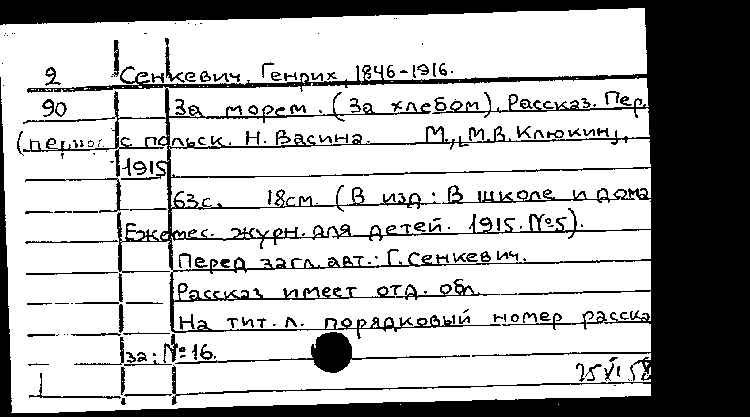 2 Сенкевич, Генрих, 1846-1916.
90 За морем. (За хлебом). Рассказ. Пер.
с польск. Н. Васина. М., [М.В. Клюкин],
1915
63с. 18см. (В изд: В школе и дома
Ежемес. журн. для детей. 1915. №5).
Перед загл. авт.: Г. Сенкевич.
Рассказ имеет отд. обл.
На тит. л. порядковый номер расска
за: №16.
25 XI 58